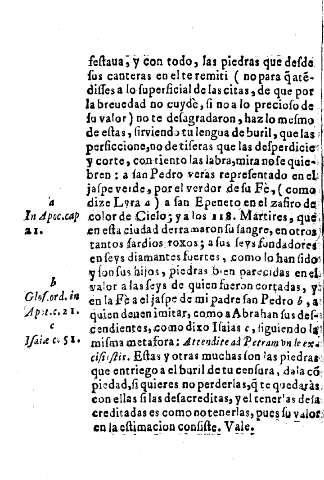 festaua; y con todo, las piedras que desde
sus canteras en el te remiti ( no para q̃ atẽ-
disses a lo superficial de las citas, de que por
la breuedad no cuydè, si no a lo precioso de
su valor ) no te desagradaron, haz lo mesmo
de estas, sirviendo tu lengua de buril, que las
perficcione, no de tiseras que las desperdicie
y corte, con tiento las labra, mira no se quie-
bren: a san Pedro veras representado en el
jaspe verde, por el verdor de su Fè, ( como
dize Lyra a ) a san Epeneto en el zafiro de
color de Cielo; y a los 118. Martires, que
en esta ciudad derramaron su sangre, en otros
tantos sardios roxos; a sus seys fundadores
en seys diamantes fuertes, como lo han sido
y son sus hijos, piedras bien parecidas en el
valor a las seys de quien fueron cortadas, y
en la Fè a el jaspe de mi padre san Pedro b, a
quien deuen imitar, como a Abrahan sus des-
cendientes, como dixo Isaias c, siguiendo la
misma metafora: Attendite ad Petram vn le ex-
cisi estis. Estas y otras muchas son las piedras
que entriego a el buril de tu censura, dala cõ
piedad, si quieres no perderlas, q̃ te quedaràs
con ellas si las desacreditas, y el tenerlas desa
creditadas es como no tenerlas, pues su valor
en la estimacion consiste. Vale.
a
In Apoc. cap
21.
b
Glos. ord. in
Apoc. c. 21.
c
Isaiæ c. 51.